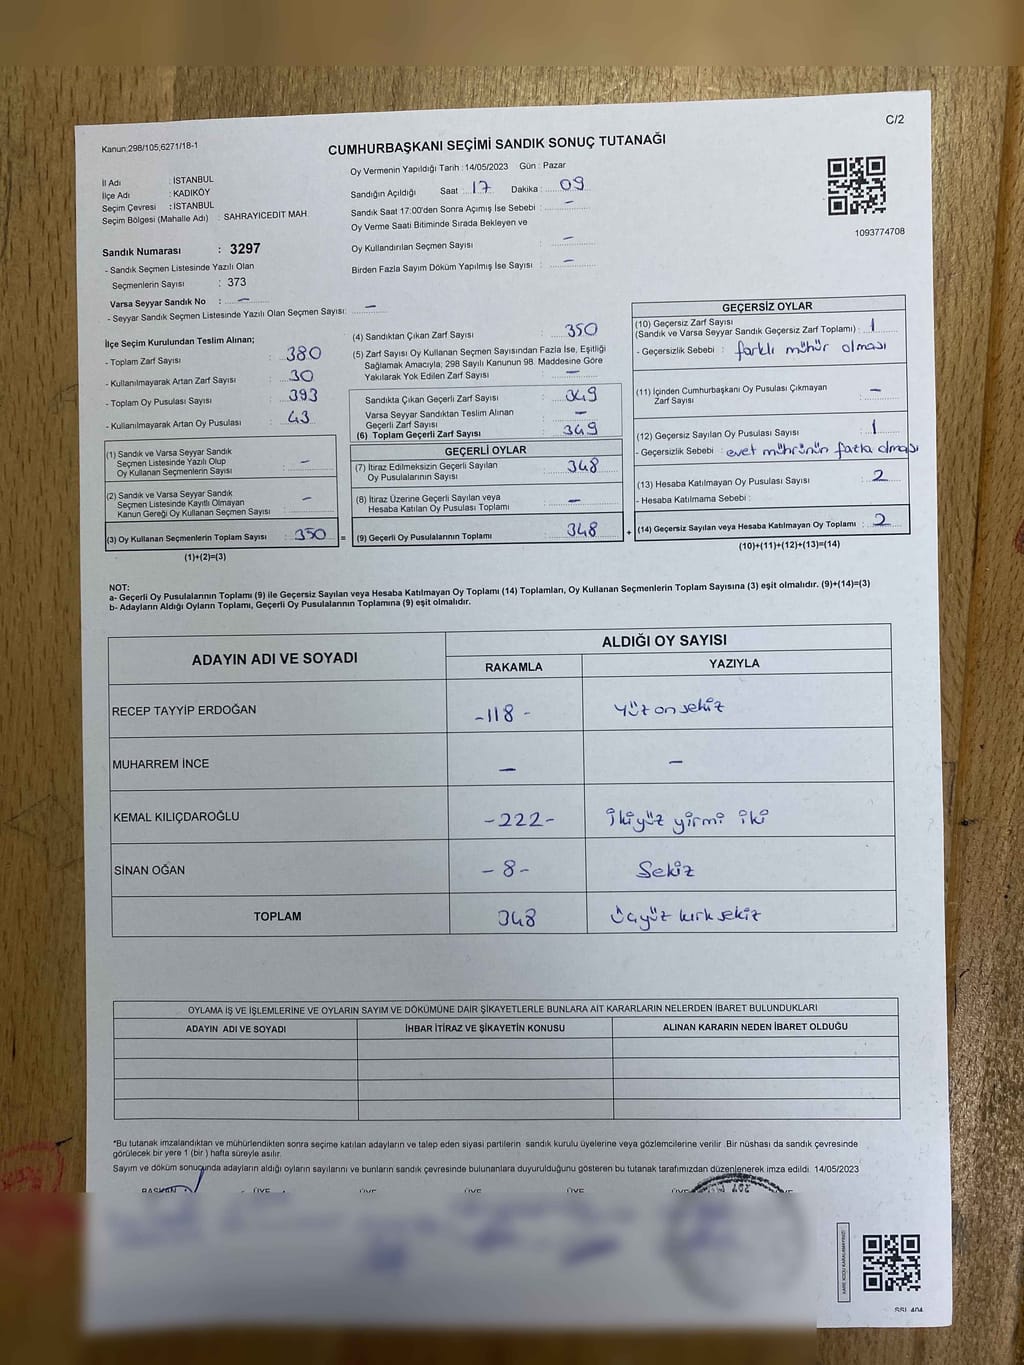 C/2
Kanun:298/105,6271/18-1
CUMHURBAŞKANI SEÇİMİ SANDIK SONUÇ TUTANAĞI
Oy Vermenin Yapıldığı Tarih : 14/05/2023 Gün : Pazar
İl Adı : İSTANBUL
İlçe Adı : KADIKÖY
Seçim Çevresi : İSTANBUL
Seçim Bölgesi (Mahalle Adı) : SAHRAYICEDIT MAH.
Sandığın Açıldığı Saat : 17 Dakika : 09
Sandık Saat 17:00'den Sonra Açımış İse Sebebi : –
Oy Verme Saati Bitiminde Sırada Bekleyen ve
Oy Kullandırılan Seçmen Sayısı : –
Birden Fazla Sayım Döküm Yapılmış İse Sayısı : –
1093774708
Sandık Numarası : 3297
- Sandık Seçmen Listesinde Yazılı Olan
Seçmenlerin Sayısı : 373
Varsa Seyyar Sandık No : –
- Seyyar Sandık Seçmen Listesinde Yazılı Olan Seçmen Sayısı: –
İlçe Seçim Kurulundan Teslim Alınan;
- Toplam Zarf Sayısı : 380
- Kullanılmayarak Artan Zarf Sayısı : 30
- Toplam Oy Pusulası Sayısı : 393
- Kullanılmayarak Artan Oy Pusulası : 43
(1) Sandık ve Varsa Seyyar Sandık
Seçmen Listesinde Yazılı Olup
Oy Kullanan Seçmenlerin Sayısı : –
(2) Sandık ve Varsa Seyyar Sandık
Seçmen Listesinde Kayıtlı Olmayan
Kanun Gereği Oy Kullanan Seçmen Sayısı : –
(3) Oy Kullanan Seçmenlerin Toplam Sayısı : 350 =
(1)+(2)=(3)
(4) Sandıktan Çıkan Zarf Sayısı : 350
(5) Zarf Sayısı Oy Kullanan Seçmen Sayısından Fazla İse, Eşitliği
Sağlamak Amacıyla; 298 Sayılı Kanunun 98. Maddesine Göre
Yakılarak Yok Edilen Zarf Sayısı : –
Sandıkta Çıkan Geçerli Zarf Sayısı : 349
Varsa Seyyar Sandıktan Teslim Alınan
Geçerli Zarf Sayısı : –
(6) Toplam Geçerli Zarf Sayısı : 349
GEÇERLİ OYLAR
(7) İtiraz Edilmeksizin Geçerli Sayılan
Oy Pusulalarının Sayısı : 348
(8) İtiraz Üzerine Geçerli Sayılan veya
Hesaba Katılan Oy Pusulası Toplamı : –
(9) Geçerli Oy Pusulalarının Toplamı : 348 +
GEÇERSİZ OYLAR
(10) Geçersiz Zarf Sayısı
(Sandık ve Varsa Seyyar Sandık Geçersiz Zarf Toplamı) : 1
- Geçersizlik Sebebi : farklı mühür olması
(11) İçinden Cumhurbaşkanı Oy Pusulası Çıkmayan
Zarf Sayısı : –
(12) Geçersiz Sayılan Oy Pusulası Sayısı : 1
- Geçersizlik Sebebi : evet mührünün fazla olması
(13) Hesaba Katılmayan Oy Pusulası Sayısı : 2
- Hesaba Katılmama Sebebi :
(14) Geçersiz Sayılan veya Hesaba Katılmayan Oy Toplamı : 2
(10)+(11)+(12)+(13)=(14)
NOT:
a- Geçerli Oy Pusulalarının Toplamı (9) ile Geçersiz Sayılan veya Hesaba Katılmayan Oy Toplamı (14) Toplamları, Oy Kullanan Seçmenlerin Toplam Sayısına (3) eşit olmalıdır. (9)+(14)=(3)
b- Adayların Aldığı Oyların Toplamı, Geçerli Oy Pusulalarının Toplamına (9) eşit olmalıdır.
ADAYIN ADI VE SOYADI ALDIĞI OY SAYISI
RAKAMLA YAZIYLA
RECEP TAYYİP ERDOĞAN -118- Yüz on sekiz
MUHARREM İNCE – –
KEMAL KILIÇDAROĞLU -222- İkiyüz yirmi iki
SİNAN OĞAN -8- Sekiz
TOPLAM 348 Üçyüz kırk sekiz
OYLAMA İŞ VE İŞLEMLERİNE VE OYLARIN SAYIM VE DÖKÜMÜNE DAİR ŞİKAYETLERLE BUNLARA AİT KARARLARIN NELERDEN İBARET BULUNDUKLARI
ADAYIN ADI VE SOYADI İHBAR İTİRAZ VE ŞİKAYETİN KONUSU ALINAN KARARIN NEDEN İBARET OLDUĞU
*Bu tutanak imzalandıktan ve mühürlendikten sonra seçime katılan adayların ve talep eden siyasi partilerin sandık kurulu üyelerine veya gözlemcilerine verilir. Bir nüshası da sandık çevresinde
görülecek bir yere 1 (bir ) hafta süreyle asılır.
Sayım ve döküm sonucunda adayların aldığı oyların sayılarını ve bunların sandık çevresinde bulunanlara duyurulduğunu gösteren bu tutanak tarafımızdan düzenlenerek imza edildi. 14/05/2023
BAŞKAN ÜYE ÜYE ÜYE ÜYE ÜYE